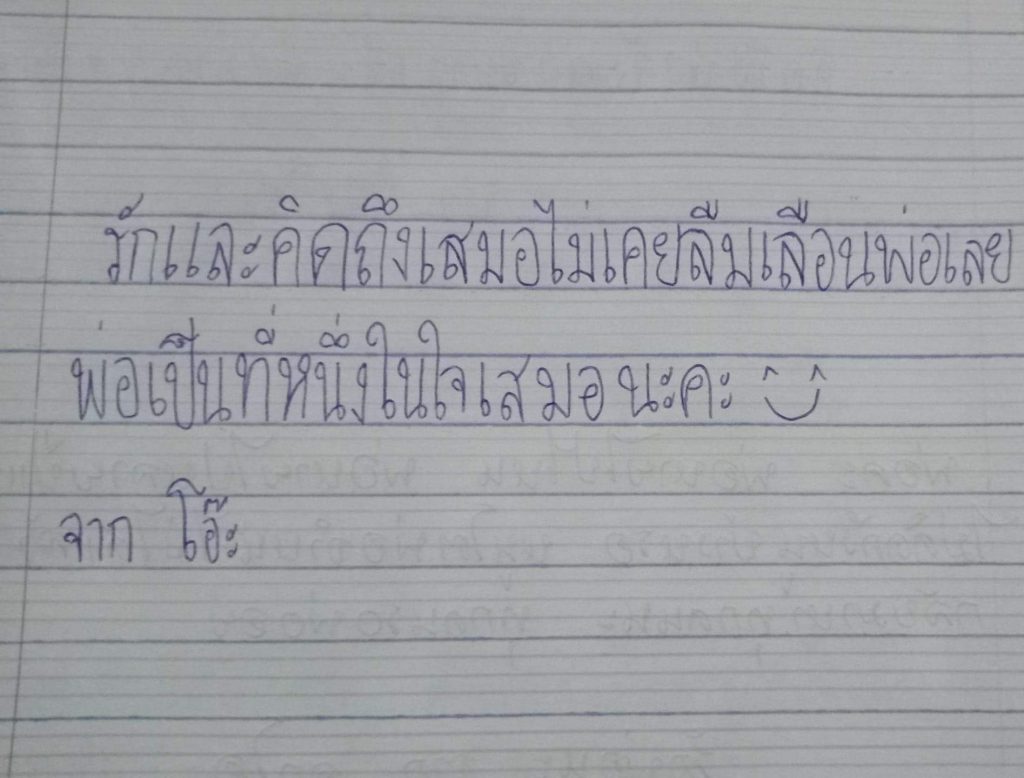 รักและคิดถึงเสมอไม่เคยลืมเลือนพ่อเลย
พ่อเป็นที่หนึ่งในใจเสมอ นะคะ
จาก โอ๊ะ